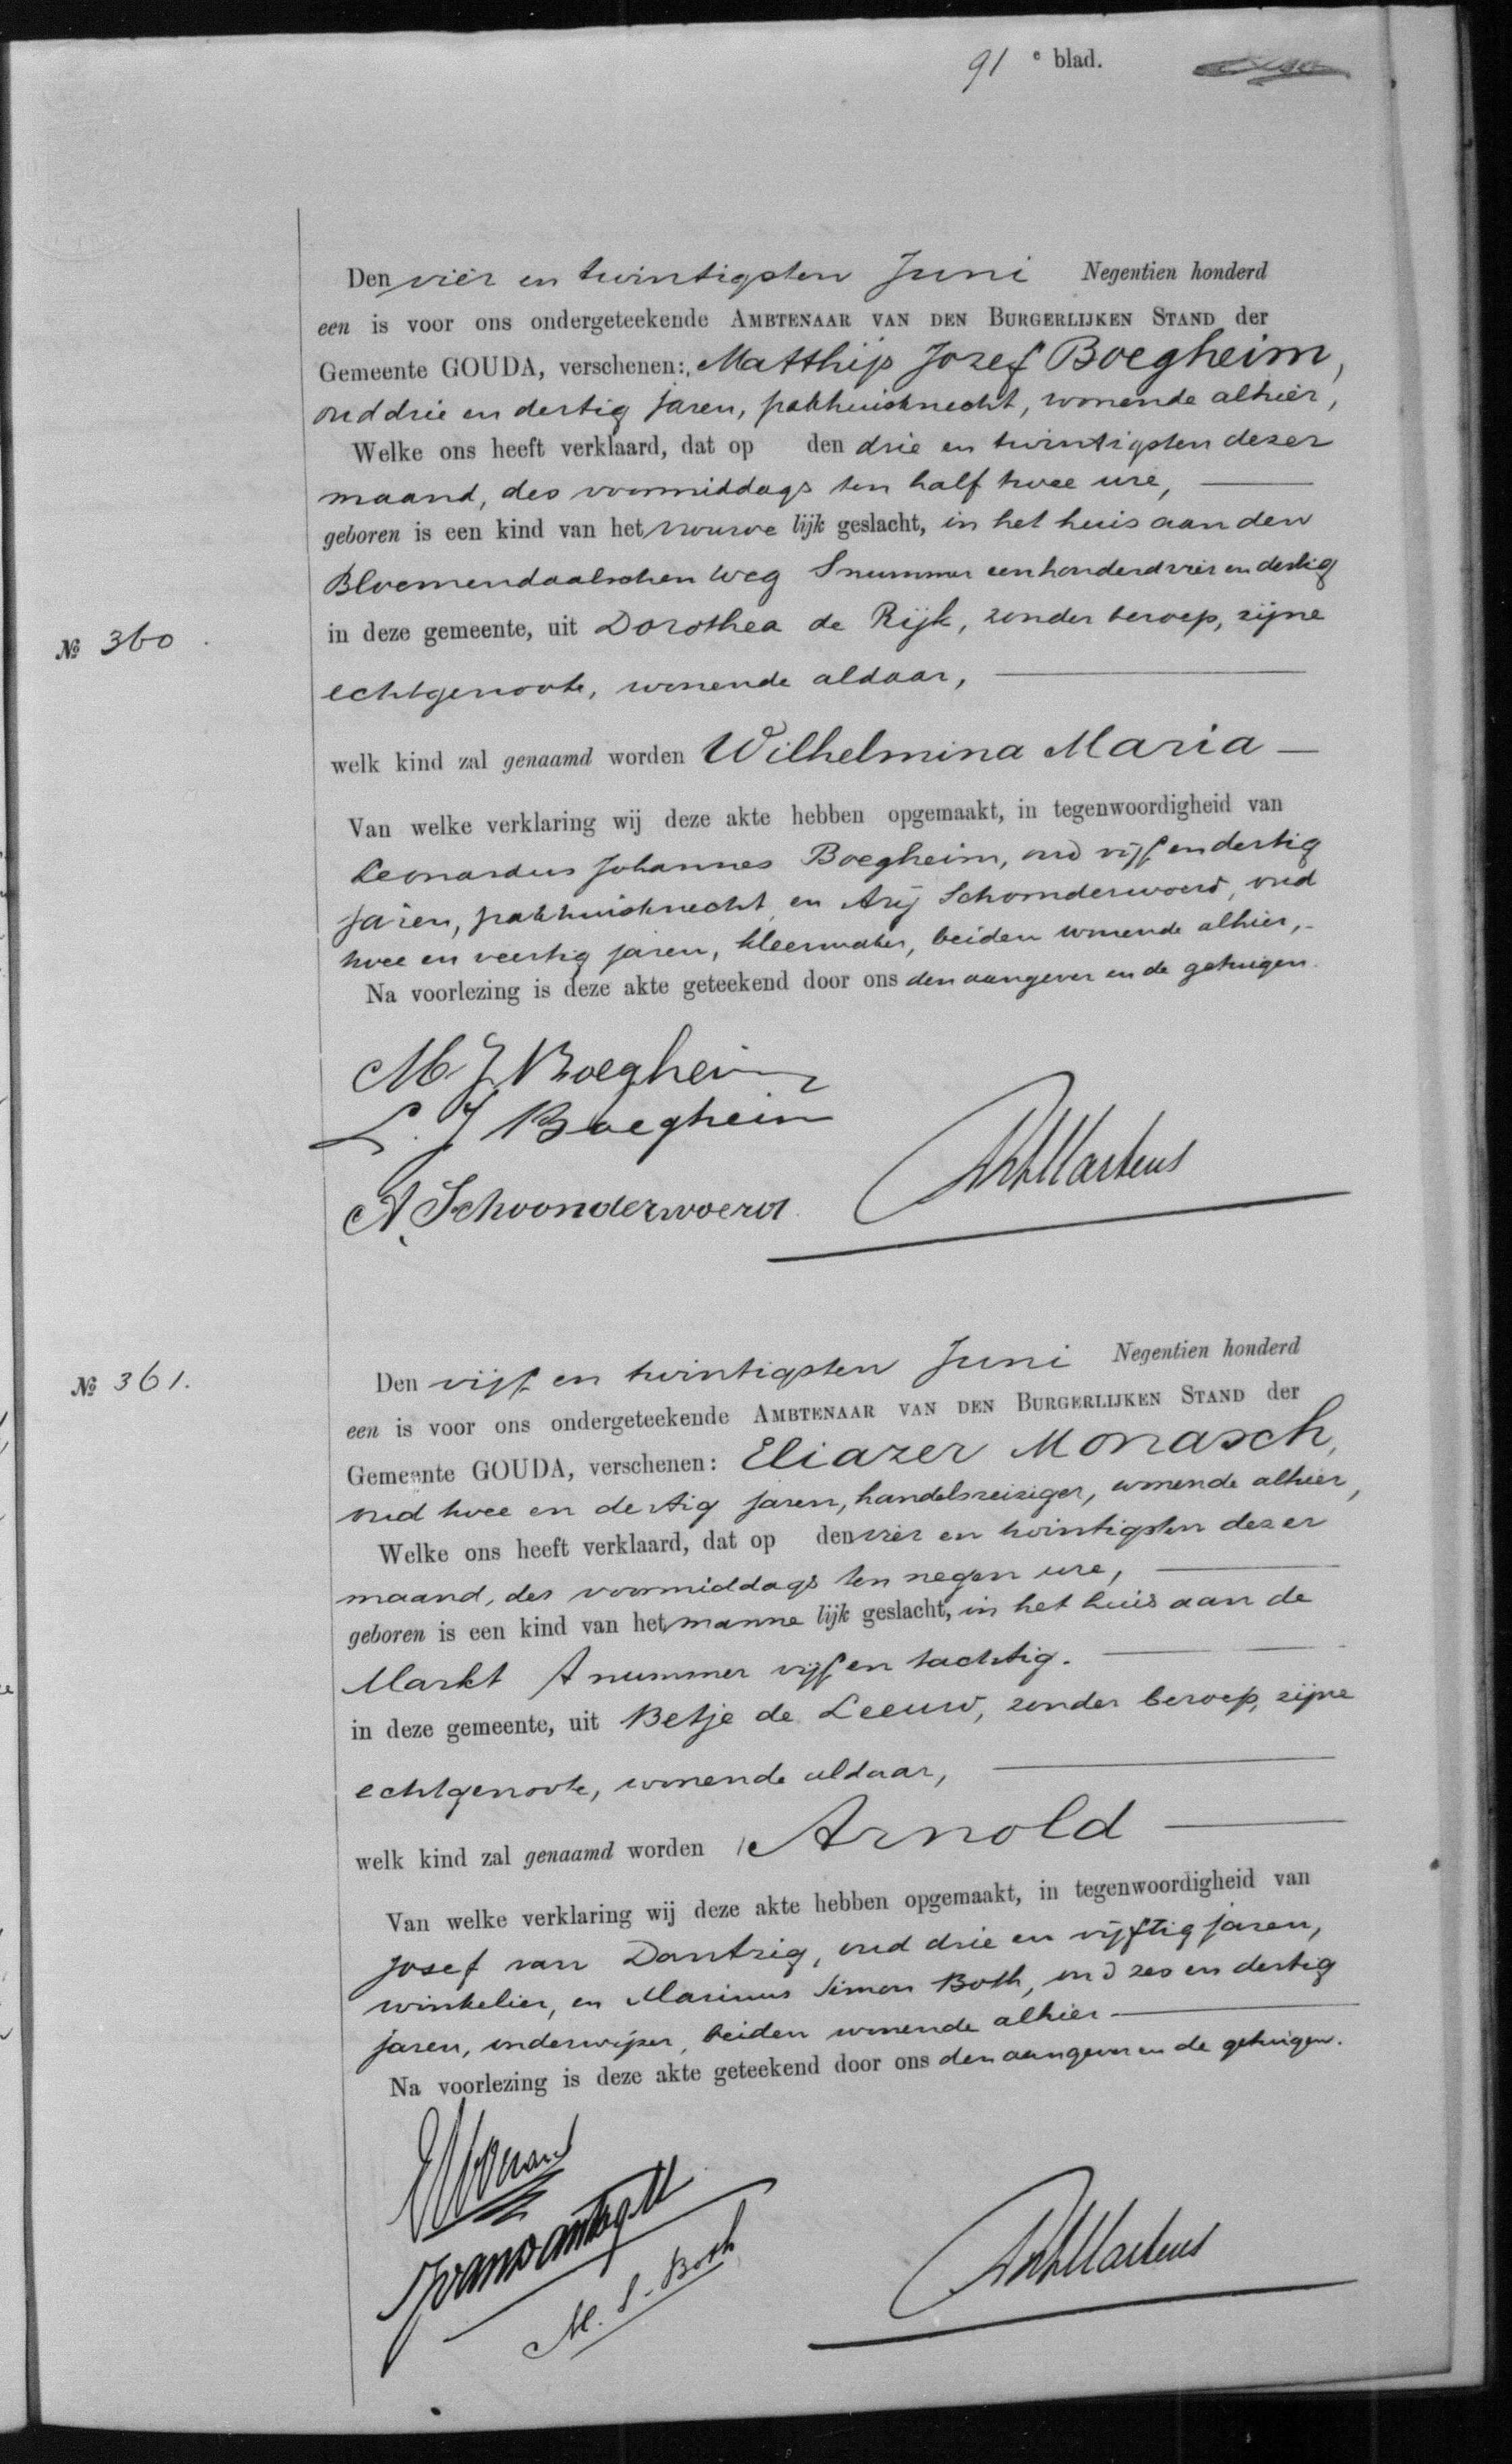 91 e blad.
Den vier en twintigsten Juni Negentien honderd
een is voor ons ondergeteekende AMBTENAAR VAN DEN BURGERLIJKEN STAND der
Gemeente GOUDA, verschenen: Matthijs Jozef Boegheim,
oud drie en dertig jaren, pakhuisknecht, wonende alhier,
Welke ons heeft verklaard, dat op den drie en twintigsten dezer
maand, des voormiddags ten half twee ure,
geboren is een kind van het vrouwe lijk geslacht, in het huis aan den
Bloemendaalschen weg S nummer eenhonderd vier en dertig
№ 360.
in deze gemeente, uit Dorothea de Rijk, zonder beroep, zijne
echtgenoote, wonende aldaar,
welk kind zal genaamd worden Wilhelmina Maria
Van welke verklaring wij deze akte hebben opgemaakt, in tegenwoordigheid van
Leonardus Johannes Boegheim, oud vijf en dertig
jaren, pakhuisknecht en Arij Schoonderwoerd, oud
twee en veertig jaren, kleermaker, beiden wonende alhier,
Na voorlezing is deze akte geteekend door ons den aangever en de getuigen.
M J Boegheim
L. J Boegheim
A. Schoonderwoerd
Martens
№ 361.
Den vijf en twintigsten Juni Negentien honderd
een is voor ons ondergeteekende AMBTENAAR VAN DEN BURGERLIJKEN STAND der
Gemeente GOUDA, verschenen: Eliazer Monasch,
oud twee en dertig jaren, handelsreiziger, wonende alhier,
Welke ons heeft verklaard, dat op den vier en twintigsten dezer
maand, des voormiddags ten negen ure,
geboren is een kind van het manne lijk geslacht, in het huis aan de
Markt A nummer vijf en tachtig.
in deze gemeente, uit Betje de Leeuw, zonder beroep, zijne
echtgenoote, wonende aldaar,
welk kind zal genaamd worden Arnold
Van welke verklaring wij deze akte hebben opgemaakt, in tegenwoordigheid van
Josef van Dantzig, oud drie en vijftig jaren,
winkelier, en Marinus Simon Both, oud zes en dertig
jaren, onderwijzer, beiden wonende alhier
Na voorlezing is deze akte geteekend door ons den aangever en de getuigen.
M. S. Both
Martens